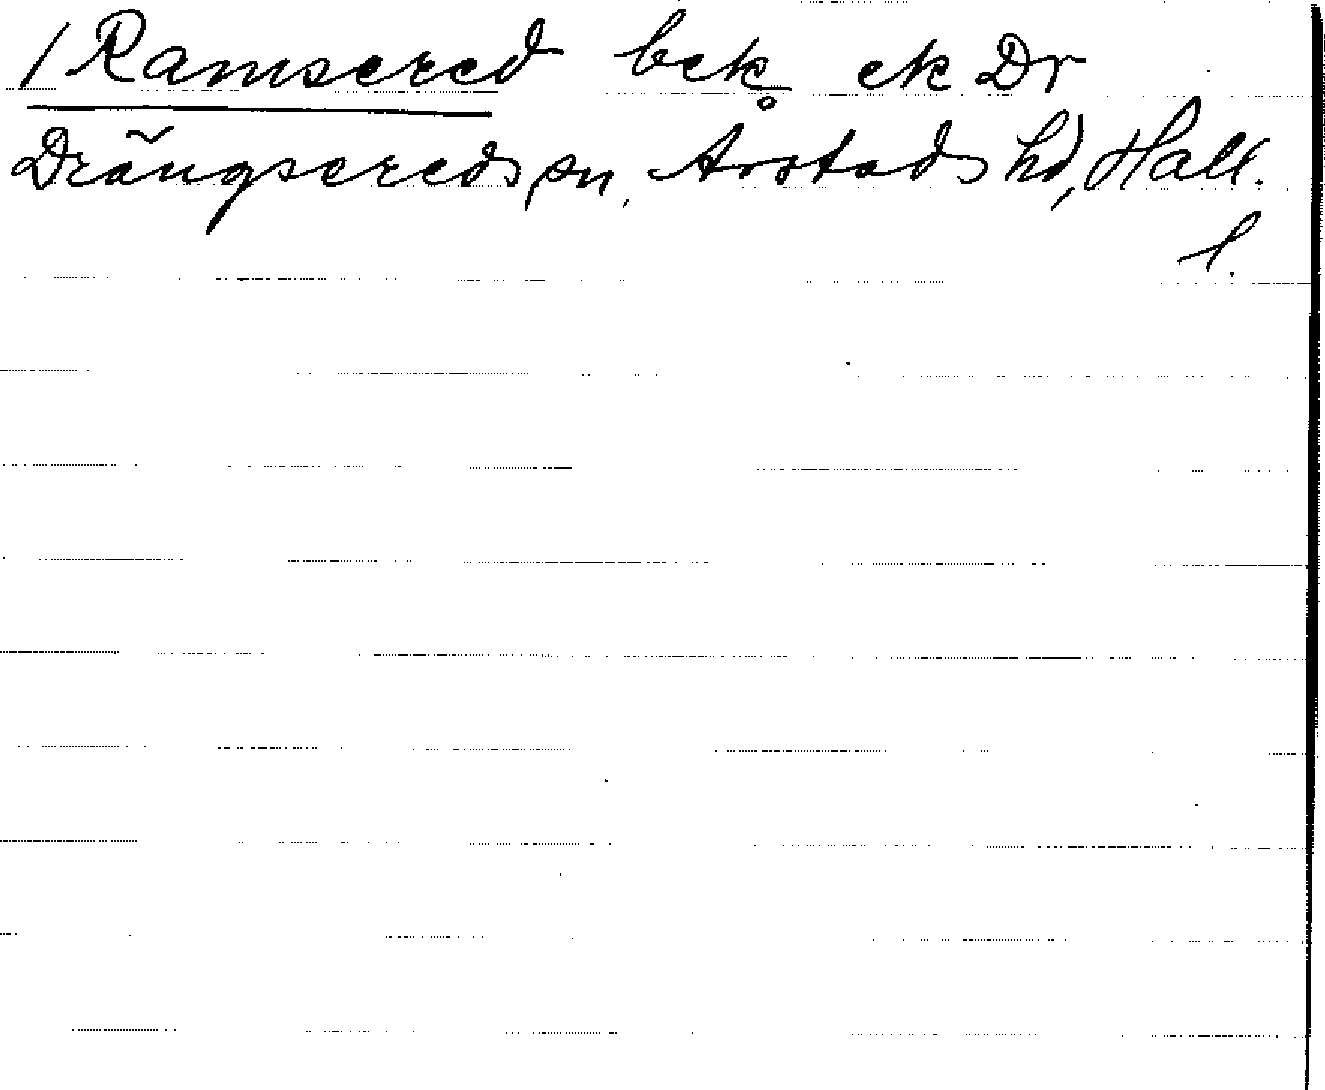 / Ramsered bek ek Dr
Drängsereds sn, Årstads hd, Hall.
l.